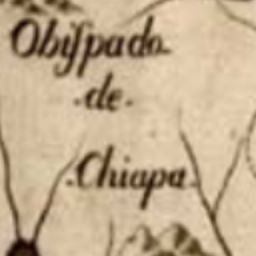 Obiſpado
.de.
.Chiapa.